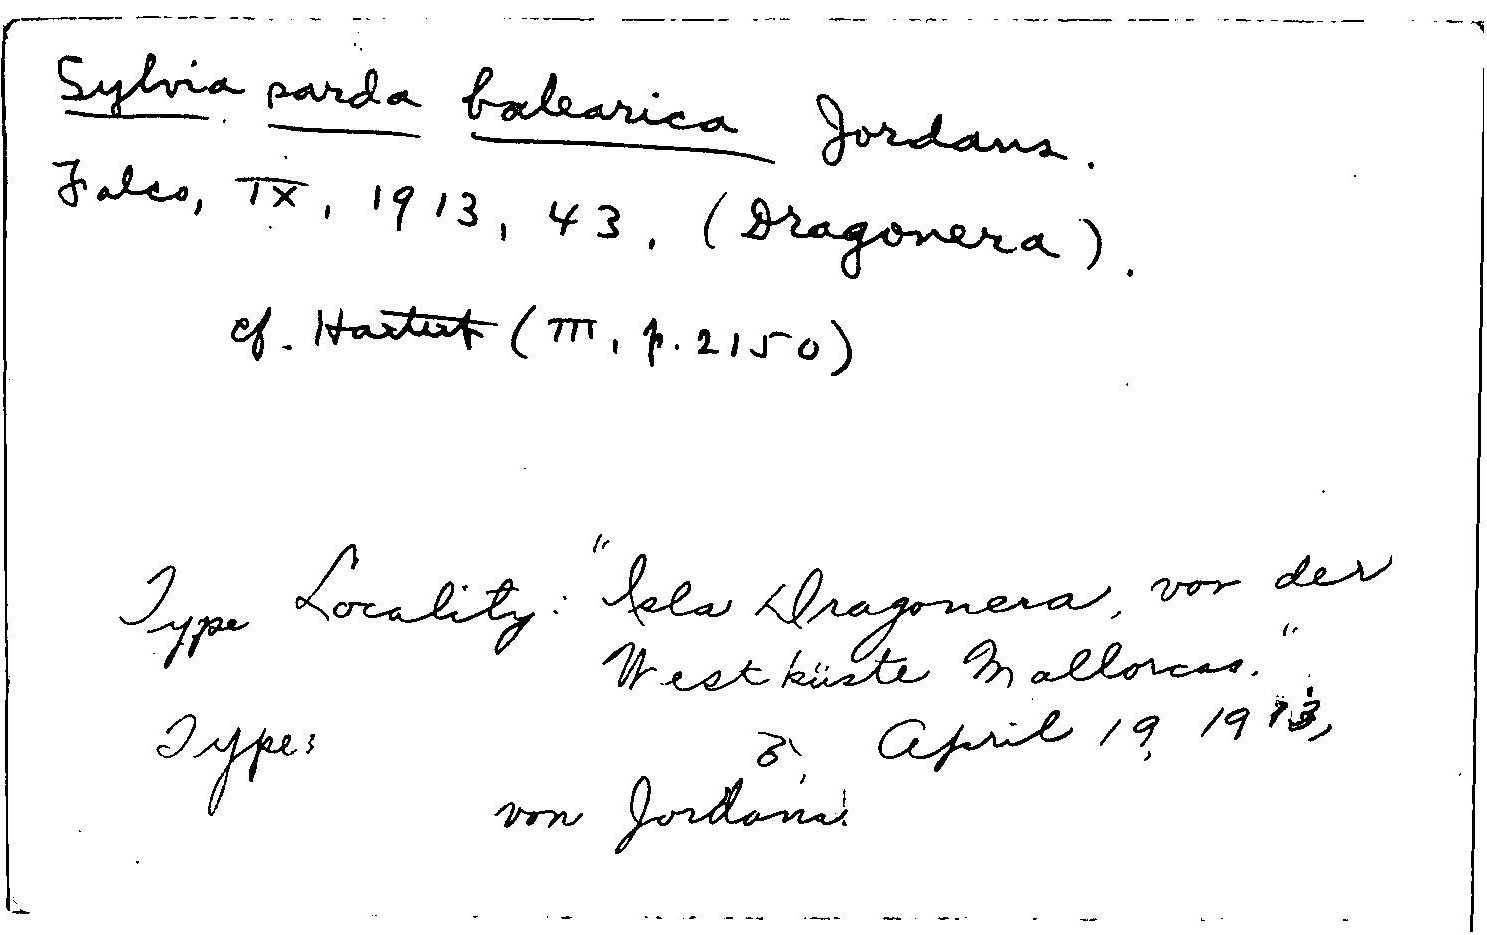 Sylvia sarda balearica Jordans.
Falco, IX, 1913, 43, (Dragonera).
cf. Hartert (III, p. 2150)
Type Locality: "Isla Dragonera, vor der
Westküste Mallorcas."
Type: ♂, April 19, 1913,
von Jordans.